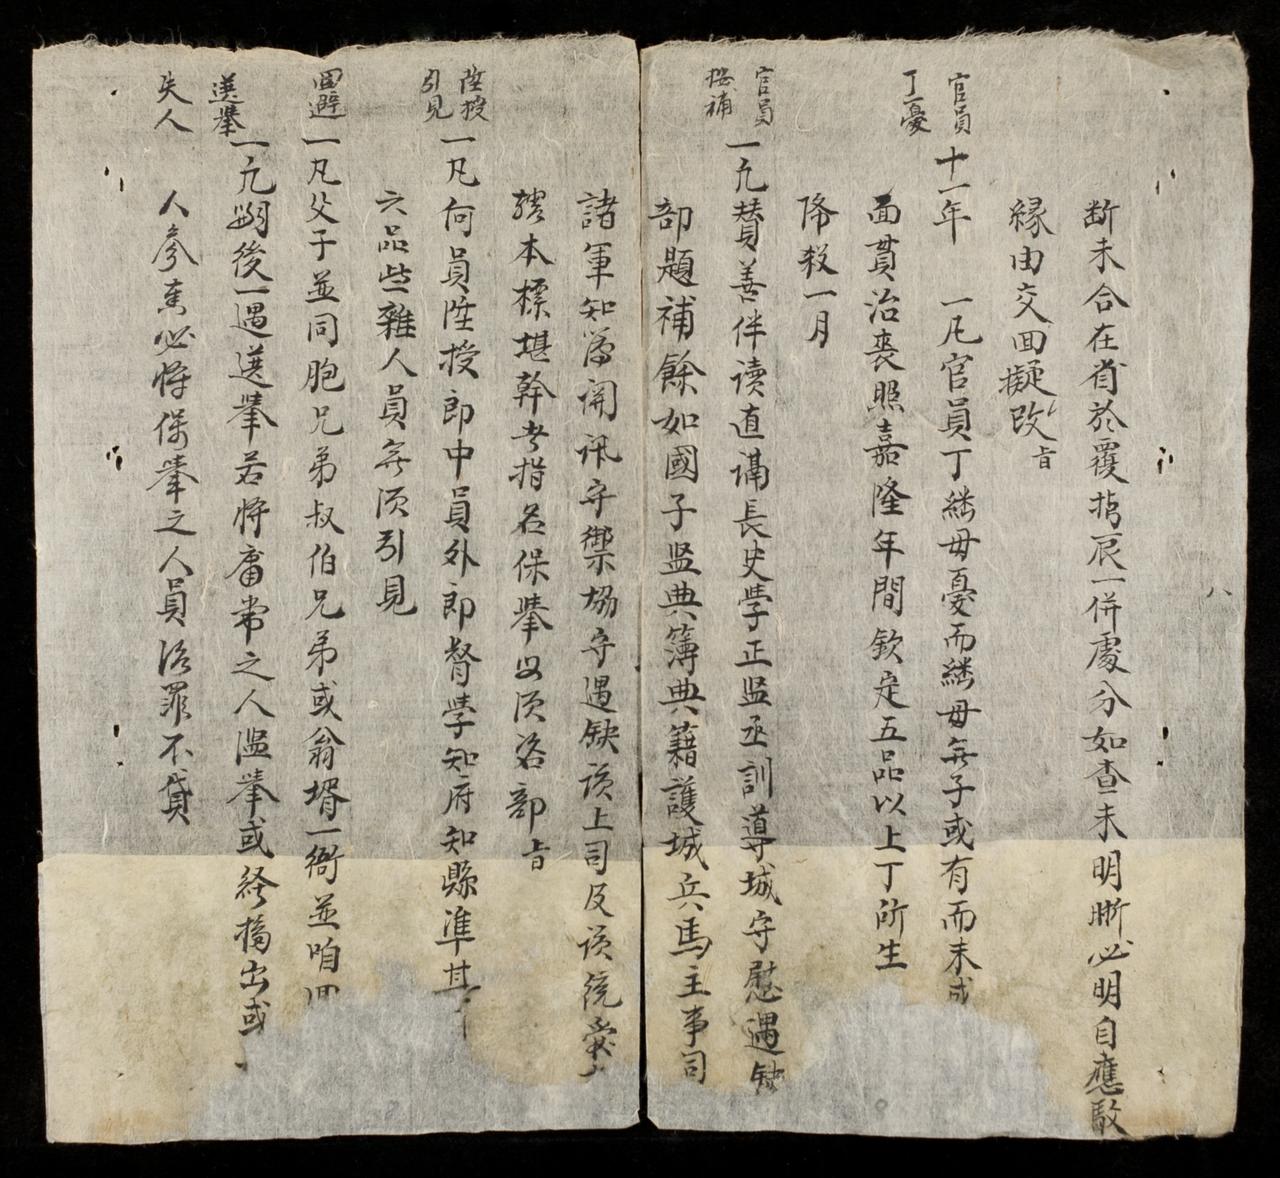 断未合在省於覆指辰一併處分如查未明晰必明自應駁
緣由交面擬改旨
官員
丁憂
十一年 一凡官員丁繼母憂而繼母無子或有而未成
面貫治喪照嘉隆年間欽定五品以上丁所生
降殺一月
官員
授補
一凡賛善伴讀直講長史學正監丞訓導城守慰遇缺
部題補餘如國子監典簿典籍護城兵馬主事司
諸軍知簿開訊守禦協守遇缺該上司及該統
轄本標堪幹者指名保舉必須咨部旨
陞授
引見
一凡何員陞授郎中員外郎督學知府知縣準其
六品些雜人員無須引見
回避
一凡父子並同胞兄弟叔伯兄弟或翁壻一衙並咱回
選舉
一凡嗣後一遇選舉若將庸常之人濫舉或經撟出或
失人
人參奏必將保舉之人員治罪不貸
八